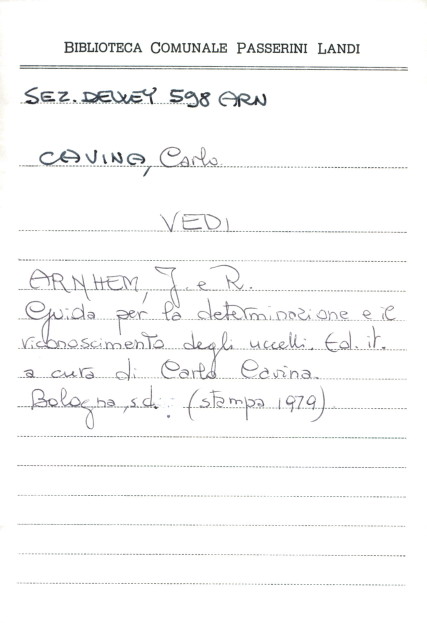 BIBLIOTECA COMUNALE PASSERINI LANDI
SEZ. DEWEY 598 ARN
CAVINA, Carlo
VEDI
ARNHEM, J. e R.
Guida per la determinazione e il
riconoscimento degli uccelli. Ed. it.
a cura di Carlo Cavina.
Bologna, s.d. (stampa 1979)